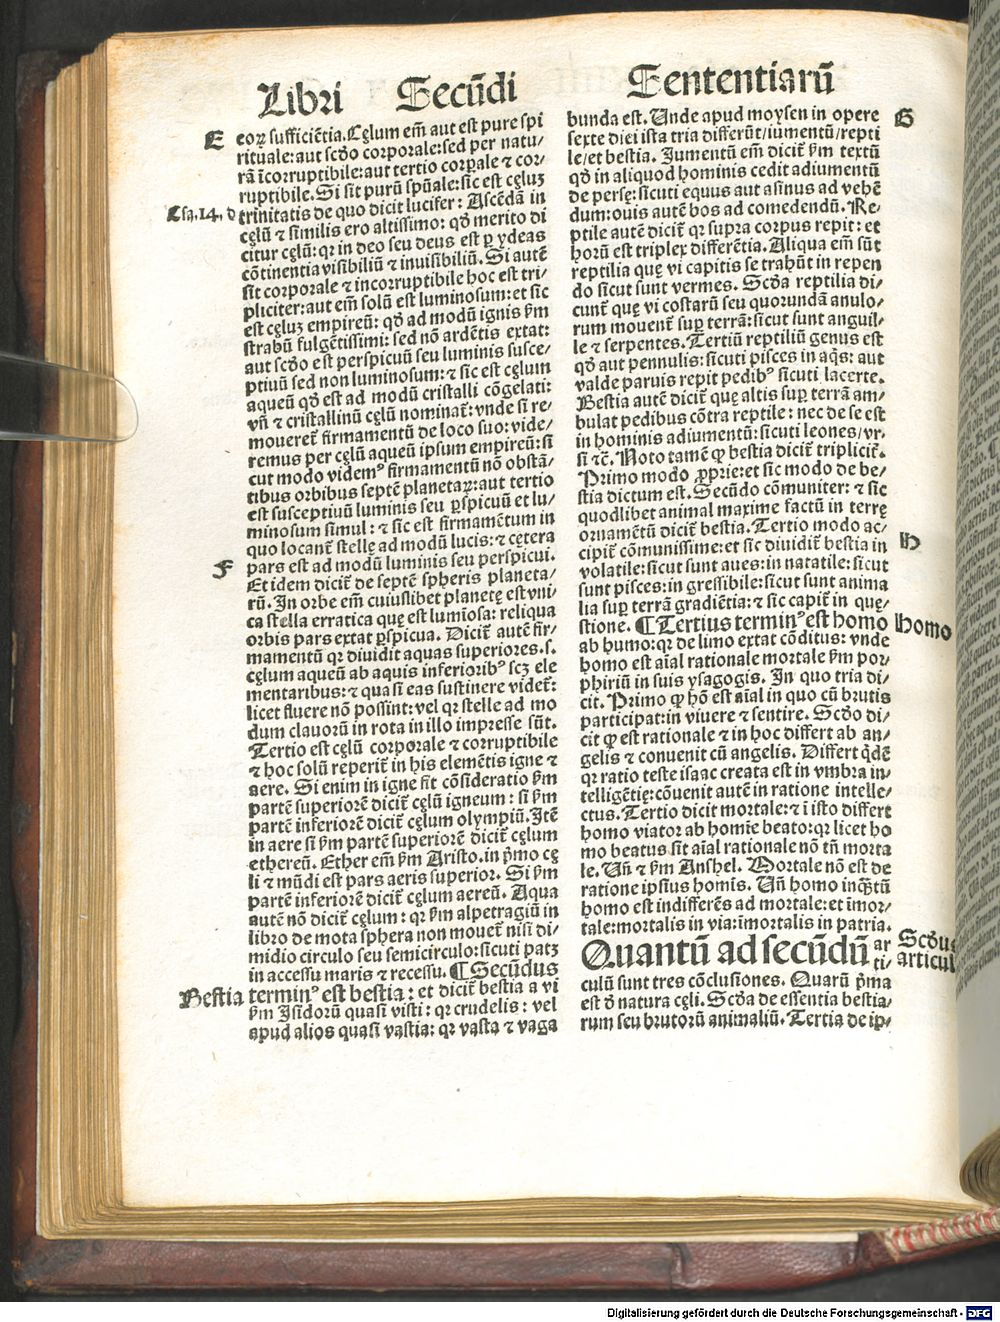 Libri Secūdi Sententiarū
E eoꝝ sufficiētia. Cęlum em̄ aut est pure spi
rituale: aut scd̄o corporale: sed per natu/
rā īcorruptibile: aut tertio corꝑale ⁊ cor/
ruptibile. Si sit purū spūale: sic est cęluꝫ
Esa. 14. d trinitatis de quo dicit lucifer: Ascēdā in
cęlū ⁊ similis ero altissimo: qd̄ merito di
citur cęlū: qr in deo seu deus est ꝑ ydeas
cōtinentia visibiliū ⁊ inuisibiliū. Si autē
sit corporale ⁊ incorruptibile hoc est tri/
pliciter: aut em̄ solū est luminosum: et sic
est cęluꝫ empireū: qd̄ ad modū ignis ẜm
strabū fulgētissimi: sed nō ardētis extat:
aut scd̄o est perspicuū seu luminis susce/
ptiuū sed non luminosum: ⁊ sic est cęlum
aqueū qd̄ est ad modū cristalli cōgelati:
vn̄ ⁊ cristallinū cęlū nominat̄: vnde si re/
moueret̄ firmamentū de loco suo: vide/
remus per cęlū aqueū ipsum empireū: si
cut modo videmꝰ firmamentū nō obstā/
tibus orbibus septē planetaꝝ: aut tertio
est susceptiuū luminis seu ꝑspicuū et lu/
minosum simul: ⁊ sic est firmamētum in
quo locant̄ stellę ad modū lucis: ⁊ cętera
F pars est ad modū luminis seu perspicui.
Et idem dicit̄ de septē spheris planeta/
rū. In orbe em̄ cuiuslibet planetę est vni/
ca stella erratica quę est lumīosa: reliqua
orbis pars extat ꝑspicua. Dicit̄ autē fir/
mamentū qr diuidit aquas superiores .s.
cęlum aqueū ab aquis inferioribꝰ scꝫ ele
mentaribus: ⁊ quasi eas sustinere videt̄:
licet fluere nō possint: vel qr stelle ad mo
dum clauorū in rota in illo impresse sūt.
Tertio est cęlū corporale ⁊ corruptibile
⁊ hoc solū reperit̄ in his elemētis igne ⁊
aere. Si enim in igne fit cōsideratio ẜm
partē superiorē dicit̄ cęlū igneum: si ẜm
partē inferiorē dicit̄ cęlum olympiū. Itē
in aere si ẜm partē superiorē dicit̄ cęlum
ethereū. Ether em̄ ẜm Aristo. in p̄mo cę
li ⁊ mūdi est pars aeris superior. Si ẜm
partē inferiorē dicit̄ cęlum aereū. Aqua
autē nō dicit̄ cęlum: qr ẜm alpetragiū in
libro de mota sphera non mouet̄ nisi di/
midio circulo seu semicirculo: sicuti patꝫ
in accessu maris ⁊ recessu. ¶ Secūdus
Bestia terminꝰ est bestia: et dicit̄ bestia a vi
ẜm Isidorū quasi visti: qr crudelis: vel
apud alios quasi vastia: qr vasta ⁊ vaga
bunda est. Unde apud moysen in opere G
sexte diei ista tria differūt/iumentū/repti
le/et bestia. Iumentū em̄ dicit̄ ẜm textū
qd̄ in aliquod hominis cedit adiumentū
de perse̜: sicuti equus aut asinus ad vehē
dum: ouis autē bos ad comedendū. Re/
ptile autē dicit̄ qr supra corpus repit: et
horū est triplex differētia. Aliqua em̄ sūt
reptilia quę vi capitis se trahūt in repen
do sicut sunt vermes. Scd̄a reptilia di/
cunt̄ quę vi costarū seu quorundā anulo/
rum mouent̄ suꝑ terrā: sicut sunt anguil/
le ⁊ serpentes. Tertiū reptiliū genus est
qd̄ aut pennulis: sicuti pisces in aq̄s: aut
valde paruis repit pedibꝰ sicuti lacerte.
Bestia autē dicit̄ quę altis suꝑ terrā am/
bulat pedibus cōtra reptile: nec de se est
in hominis adiumentū: sicuti leones/vr/
si ⁊c̄. Noto tamē ꝙ bestia dicit̄ triplicit̄.
Primo modo ꝓprie: et sic modo de be/
stia dictum est. Secūdo cōmuniter: ⁊ sic
quodlibet animal maxime factū in terrę
ornamētū dicit̄ bestia. Tertio modo ac/
cipit̄ cōmunissime: et sic diuidit̄ bestia in H
volatile: sicut sunt aues: in natatile: sicut
sunt pisces: in gressibile: sicut sunt anima
lia suꝑ terrā gradiētia: ⁊ sic capit̄ in quę/
stione. ¶ Tertius terminꝰ est homo Homo
ab humo: qr de limo extat cōditus: vnde
homo est aīal rationale mortale ẜm por/
phiriū in suis ysagogis. In quo tria di/
cit. Primo ꝙ hō est aial in quo cū brutis
participat: in viuere ⁊ sentire. Scd̄o di/
cit ꝙ est rationale ⁊ in hoc differt ab an/
gelis ⁊ conuenit cū angelis. Differt q̄dē
qr ratio teste isaac creata est in vmbra in/
telligētię: cōuenit autē in ratione intelle/
ctus. Tertio dicit mortale: ⁊ ī isto differt
homo viator ab homīe beato: qr licet ho
mo beatus sit aīal rationale nō tn̄ morta
le. Un̄ ⁊ ẜm Anshel. Mortale nō est de
ratione ipsius homīs. Un̄ homo inq̄ztū
homo est indifferēs ad mortale: et īmor/
tale: mortalis in via: īmortalis in patria.
Quantū ad secūdū ar Scd̄us
ti/ articul
culū sunt tres cōclusiones. Quarū p̄ma
est d̄ natura cęli. Scd̄a de essentia bestia/
rum seu brutorū animaliū. Tertia de ip/
Digitalisierung gefördert durch die Deutsche Forschungsgemeinschaft - DFG